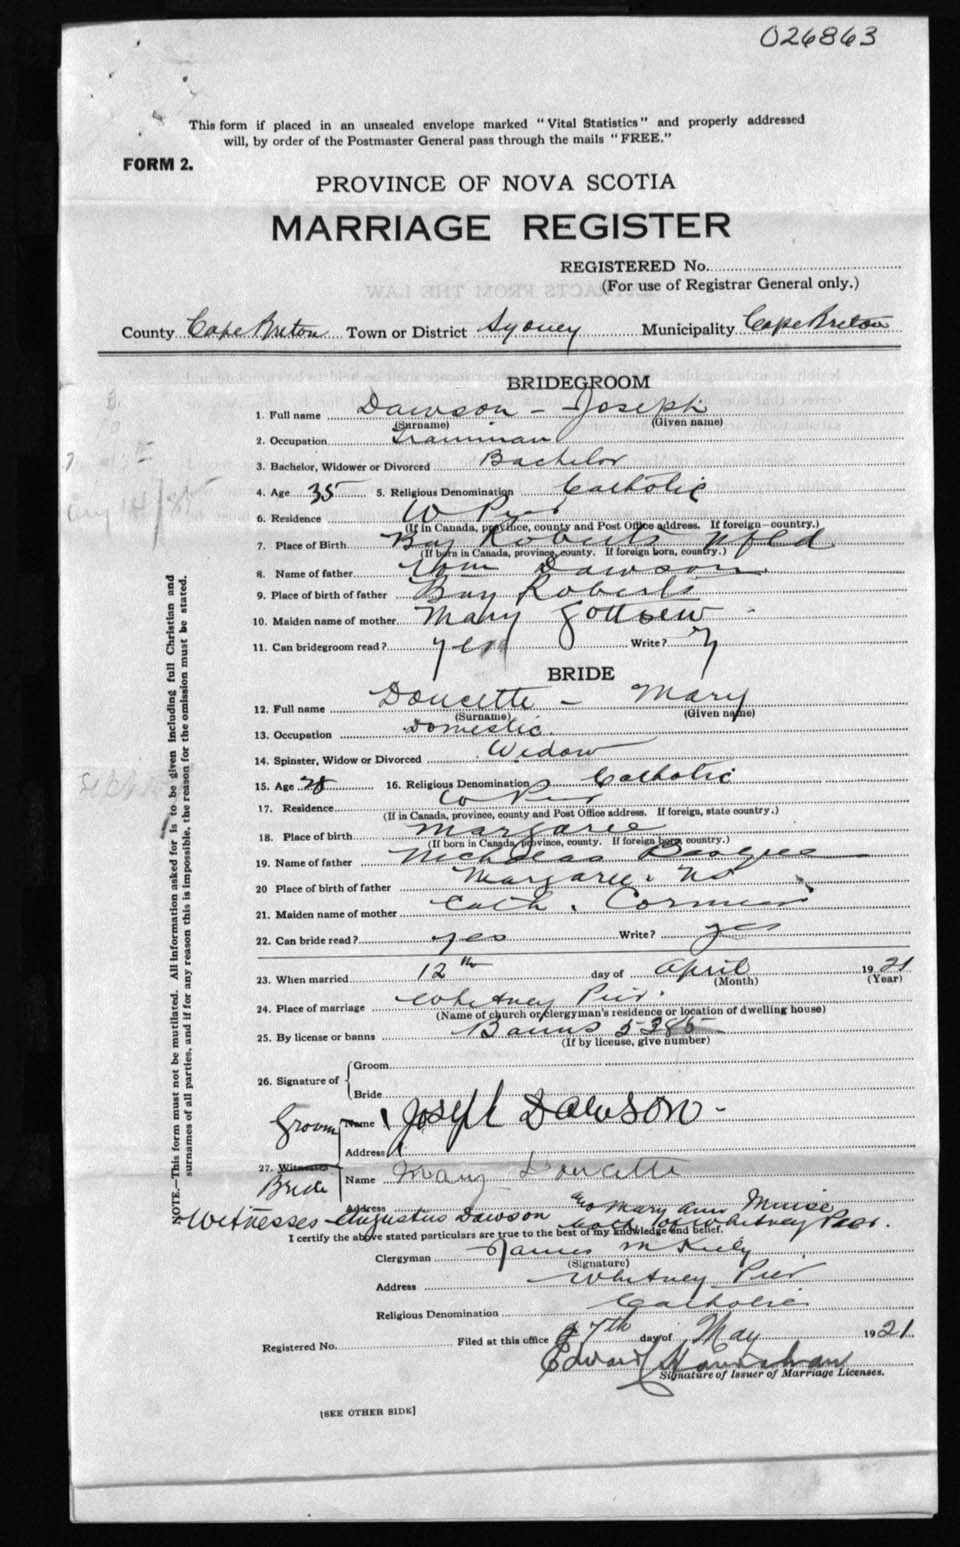 026863
This form if placed in an unsealed envelope marked "Vital Statistics" and properly addressed
will, by order of the Postmaster General pass through the mails "FREE."
FORM 2.
PROVINCE OF NOVA SCOTIA
MARRIAGE REGISTER
REGISTERED No.
(For use of Registrar General only.)
County Cape Breton Town or District Sydney Municipality Cape Breton
BRIDEGROOM
1. Full name Dawson - Joseph
(Surname) (Given name)
2. Occupation Trainman
3. Bachelor, Widower or Divorced Bachelor
4. Age 35 5. Religious Denomination Catholic
6. Residence W Pier
(If in Canada, province, county and Post Office address. If foreign—country.)
7. Place of Birth Bay Roberts Nfld
(If born in Canada, province, county. If foreign born, country.)
8. Name of father Wm Dawson
9. Place of birth of father Bay Roberts
10. Maiden name of mother Mary
11. Can bridegroom read? yes Write? y
BRIDE
12. Full name Doucette - Mary
(Surname) (Given name)
13. Occupation Domestic
14. Spinster, Widow or Divorced Widow
15. Age 28 16. Religious Denomination Catholic
17. Residence W Pier
(If in Canada, province, county and Post Office address. If foreign, state country.)
18. Place of birth Margaree
(If born in Canada, province, county. If foreign born, country.)
19. Name of father Nicholas
20 Place of birth of father Margaree. NS
21. Maiden name of mother Cath. Cormier
22. Can bride read? yes Write? yes
23. When married 12th day of April 1921
(Month) (Year)
24. Place of marriage Whitney Pier.
(Name of church or clergyman's residence or location of dwelling house)
25. By license or banns Banns 5385
(If by license, give number)
26. Signature of Groom
Bride
Groom Name Joseph Dawson -
Address
27. Witnesses
Bride Name Mary Doucette
Address
Witnesses - Augustus Dawson & Mary Ann Muise
both of Whitney Pier.
I certify the above stated particulars are true to the best of my knowledge and belief.
Clergyman James M Kiely
(Signature)
Address Whitney Pier
Religious Denomination Catholic
Registered No. Filed at this office 7th day of May 1921
Edward
Signature of Issuer of Marriage Licenses.
[SEE OTHER SIDE]
NOTE.—This form must not be mutilated. All information asked for is to be given including full Christian and
surnames of all parties, and if for any reason this is impossible, the reason for the omission must be stated.